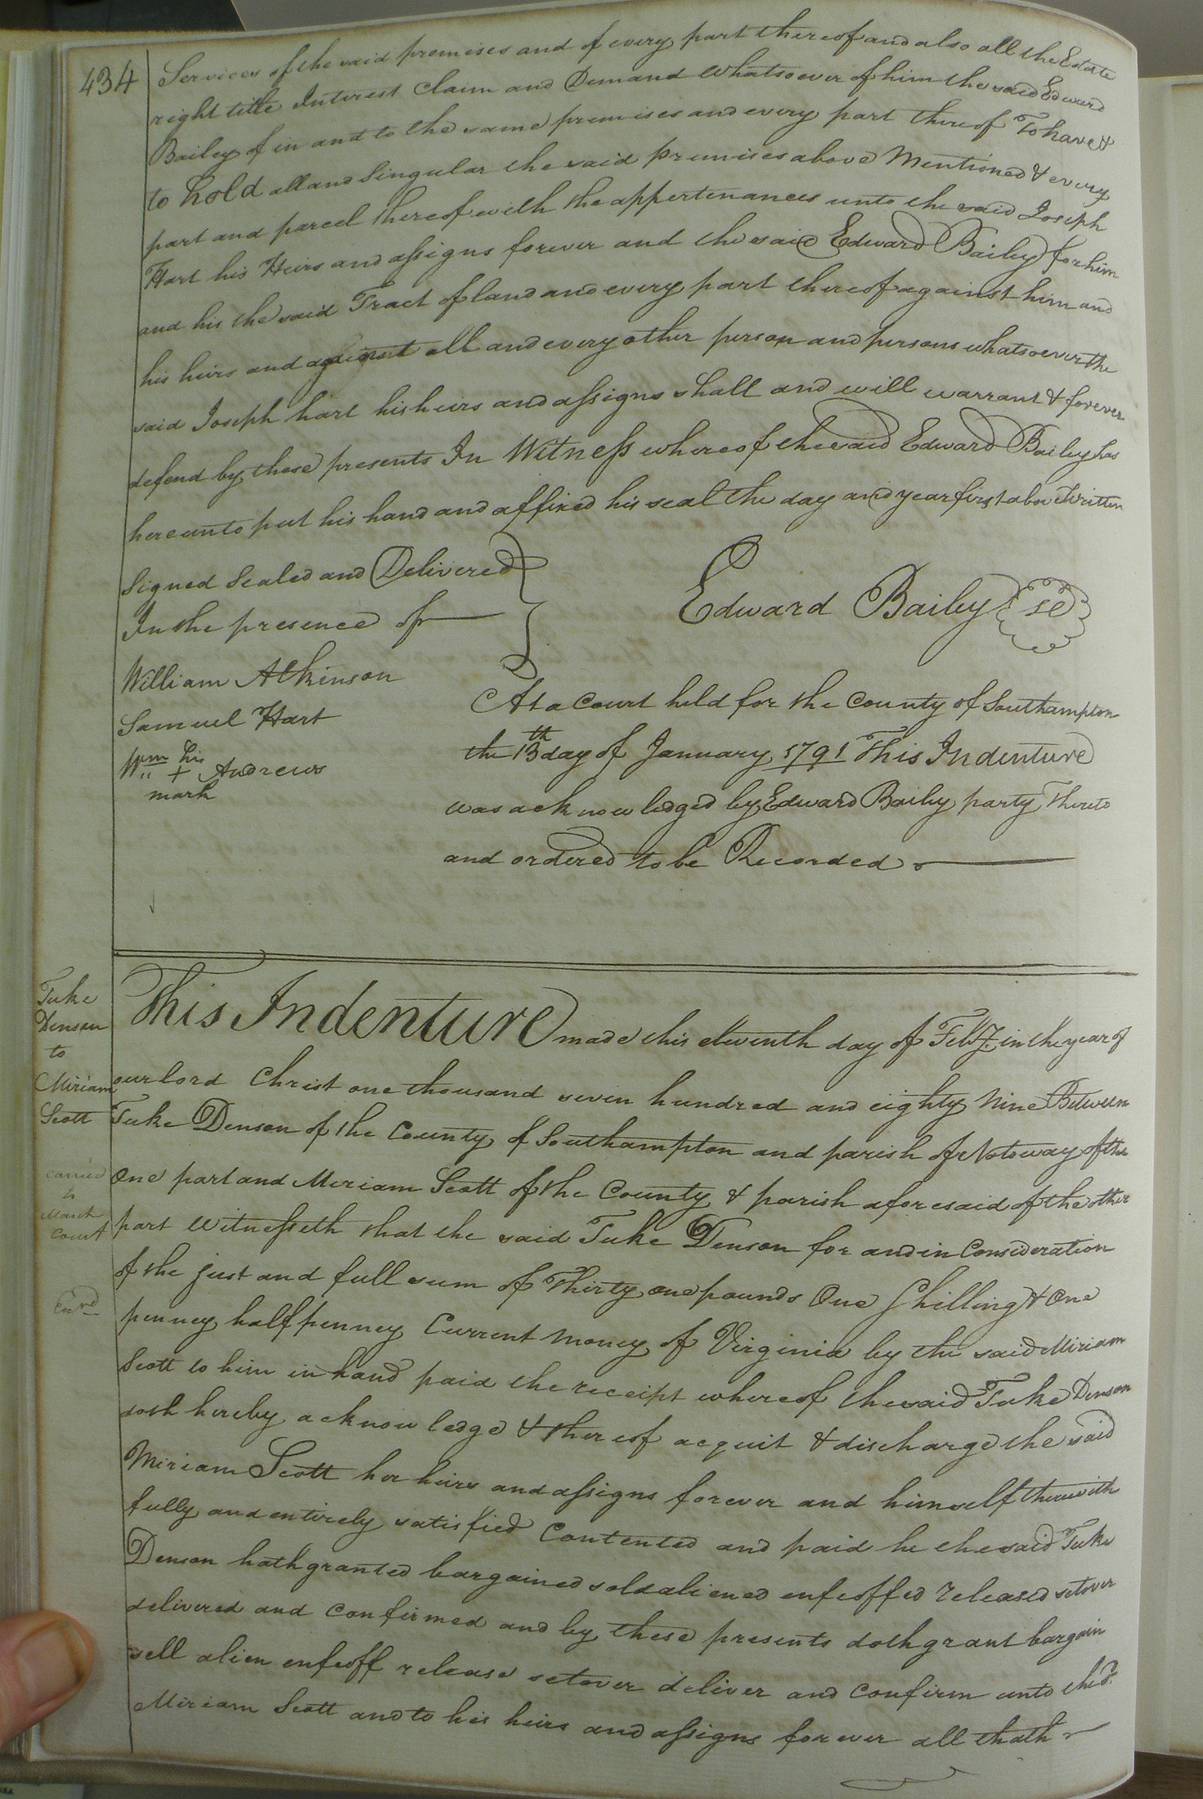 434
Services of the said premises and of every part thereof and also all the Estate
right title Interest Claim and Demand whatsoever of him the said Edward
Bailey of in and to the same premises and every part thereof To have &
to hold all and Singular the said premises above Mentioned & every
part and parcel thereof with the appertenances unto the said Joseph
Hart his Heirs and assigns forever and the said Edward Bailey for him
and his the said Tract of land and every part thereof against him and
his heirs and against all and every other person and persons whatsoever the
said Joseph hart his heirs and assigns shall and will warrant & forever
defend by these presents In Witness whereof the said Edward Bailey has
hereunto put his hand and affixed his seal the day and year first above Written
Signed Sealed and Delivered
In the presence of
Edward Bailey Se
William Atkinson
Samuel Hart
Wm his + Andrews
mark
At a Court held for the County of Southampton
the 13th day of January 1791 This Indenture
was acknowledged by Edward Bailey party Thereto
and ordered to be Recorded
Tuke
Denson
to
Miriam
Scott
carried
to
March
Court
This Indenture made this eleventh day of Feby. in the year of
our lord Christ one thousand seven hundred and eighty Nine Between
Tuke Denson of the County of Southampton and parish of Notoway of the
One part and Miriam Scott of the County & parish aforesaid of the other
part Witnesseth that the said Tuke Denson for and in Consideration
of the just and full sum of Thirty one pounds One Shilling & One
penney halfpenney Current Money of Virginia by the said Miriam
Scott to him in hand paid the receipt whereof the said Tuke Denson
doth hereby acknowledge & thereof acquit & discharge the said
Miriam Scott her heirs and assigns forever and himself therewith
fully and entirely satisfied Contented and paid he the said Tuke
Denson hath granted bargained sold aliened enfeoffed released setover
delivered and confirmed and by these presents doth grant bargain
sell alien enfeoff release setover deliver and confirm unto the sd.
Miriam Scott and to his heirs and assigns forever all thath